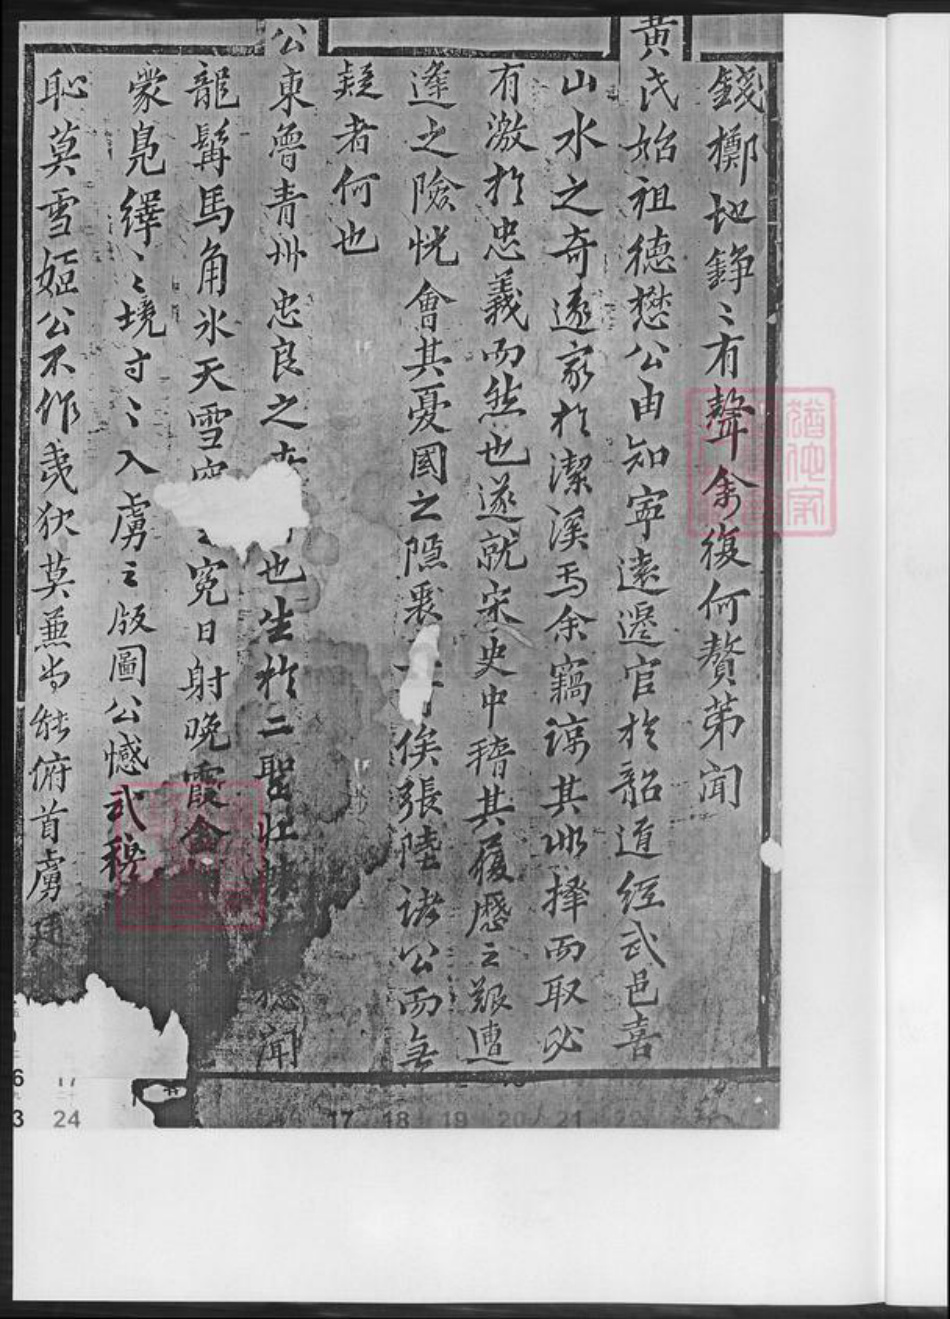 錢擲地錚〻有聲余復何贅第聞
黃氏始祖德懋公由知寧遠遷官於韶道經武邑喜
山水之奇遂家於潔溪焉余竊諒其非擇而取必
有激於忠義而然也遂就宋史中稽其履歷之艱遭
逢之險恍會其憂國之隱衷 俟張陸諸公而無
疑者何也
公東魯青州忠良之 也生於二聖 聞
龍髯馬角氷天雪 冤日射晚霞金
蒙鳧繹〻境寸〻入虜之版圖公憾武穆
恥莫雪姬公不作戎狄莫兼尚能俯首虜廷
6 17
3 24 17 18 19 20 21 22